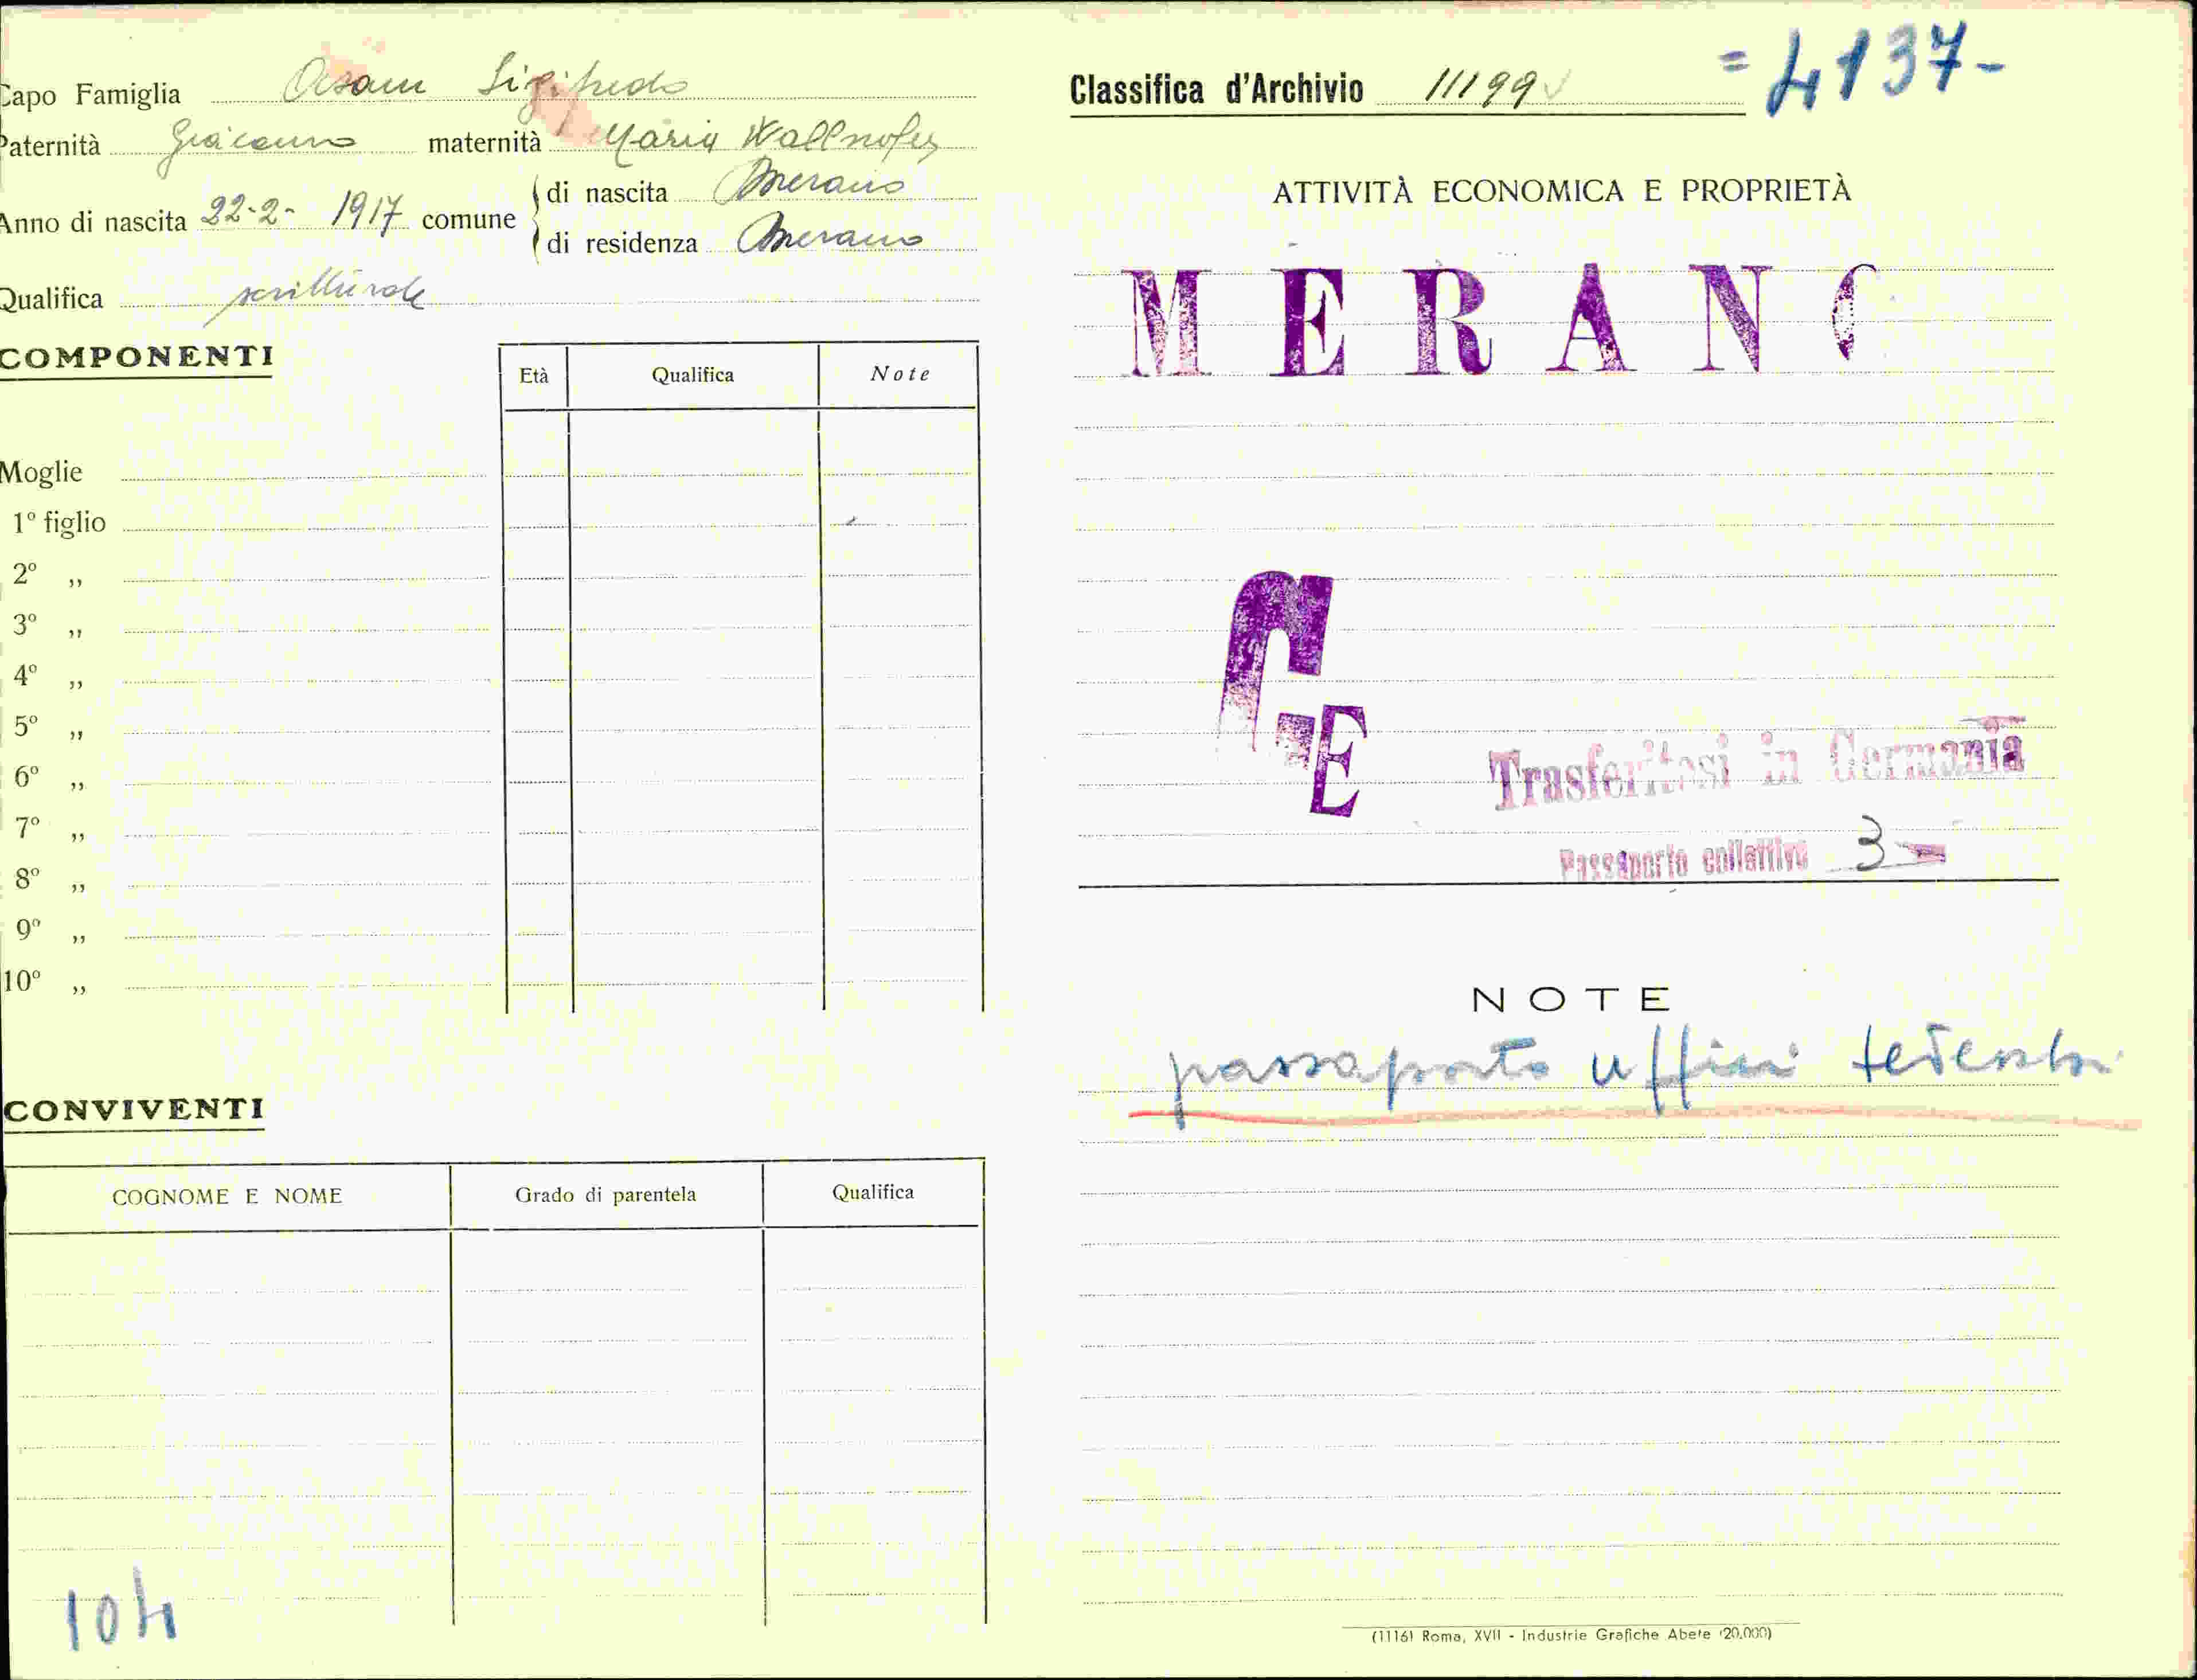 Capo Famiglia Asam Sigifredo
Paternità Giacomo maternità Maria Wallnofer
Anno di nascita 22-2- 1917 comune di nascita Merano
di residenza Merano
Qualifica scritturale
COMPONENTI
Età Qualifica Note
Moglie
1º figlio
2º „
3º „
4º „
5º „
6º „
7º „
8º „
9º „
10º „
CONVIVENTI
COGNOME E NOME Grado di parentela Qualifica
104
Classifica d'Archivio 11199 = 4137-
ATTIVITÀ ECONOMICA E PROPRIETÀ
MERANO
E
Trasferitosi in Germania
Passaporto collettivo 3
NOTE
passaporto uffici tedeschi
(11161 Roma, XVII - Industrie Grafiche Abete (20.000)